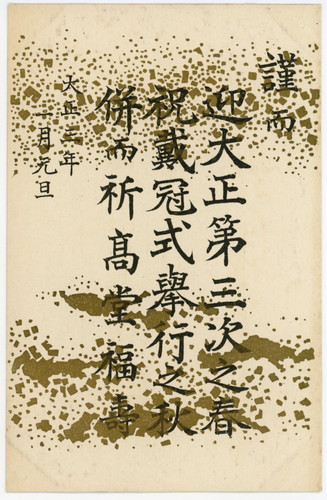 謹而
迎大正第三次之春
祝戴冠式擧行之秋
併而祈髙堂福壽
大正三年
一月元旦